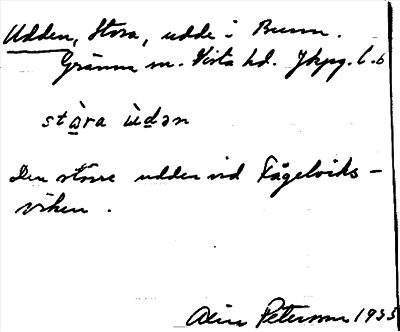 Udden, Stora, udde i Bunn.
Gränna sn. Vista hd. Jkpg. l.
stὰra ùdən
Den större udden vid Fågelviks-
viken.
Peterson 1933